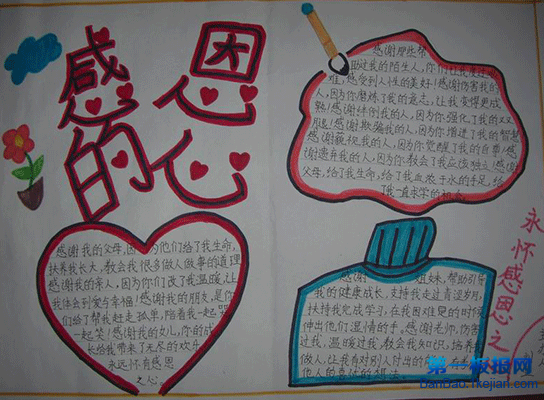 感恩
的心
感谢那些帮
助过我的陌生人，你们让我
难，感受到人性的美好！感谢伤害我的
人，因为你磨练了我的意志，让我变得更成
熟！感谢绊倒我的人，因为你强化了我的双
腿！感谢欺骗我的人，因为你增进了我的智慧
感谢藐视我的人，因为你觉醒了我的自尊！感
谢遗弃我的人，因为你教会了我应该独立！感谢
父母，给了我生命，给了我血浓于水的手足，给
了我一直求学的机会。
感谢我的父母，因为他们给了我生命，
扶养我长大，教会我很多做人做事的道理
感谢我的亲人，因为你们改了我温暖，让
我体会到爱与幸福！感谢我的朋友，是你
们给了帮我赶走孤单，陪着我一起哭
一起笑！感谢我的女儿，你的成
长给我带来了无尽的欢乐
永远怀有感恩
之心。
感谢 姐妹，帮助引导
我的健康成长，支持我走过青涩岁月，
扶持我完成学习，在我困难的时候
伸出他们温情的手。感谢老师，你害
过我，温暖过我，教会我知识，培养
做人，让我有对别人付出的
他人的尊敬的想法。
永怀感恩之
第一板报网
BanBao.fkejian.com